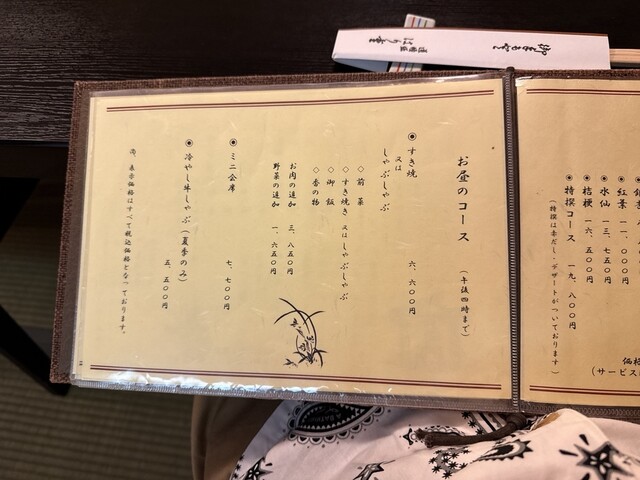 御手もと
道頓堀
はり重
紅葉 一一、〇〇〇円
水仙 一三、七五〇円
桔梗 一六、五〇〇円
特撰コース 一九、八〇〇円
（特撰は赤だし・デザートがついております）
（サービス
お昼のコース （午後四時まで）
すき焼
又は
しゃぶしゃぶ 六、六〇〇円
◇前菜
◇すき焼き 又は しゃぶしゃぶ
◇御飯
◇香の物
お肉の追加 三、八五〇円
野菜の追加 一、六五〇円
ミニ会席 七、七〇〇円
冷やし牛しゃぶ（夏季のみ） 五、五〇〇円
尚、表示価格はすべて税込価格となっております。